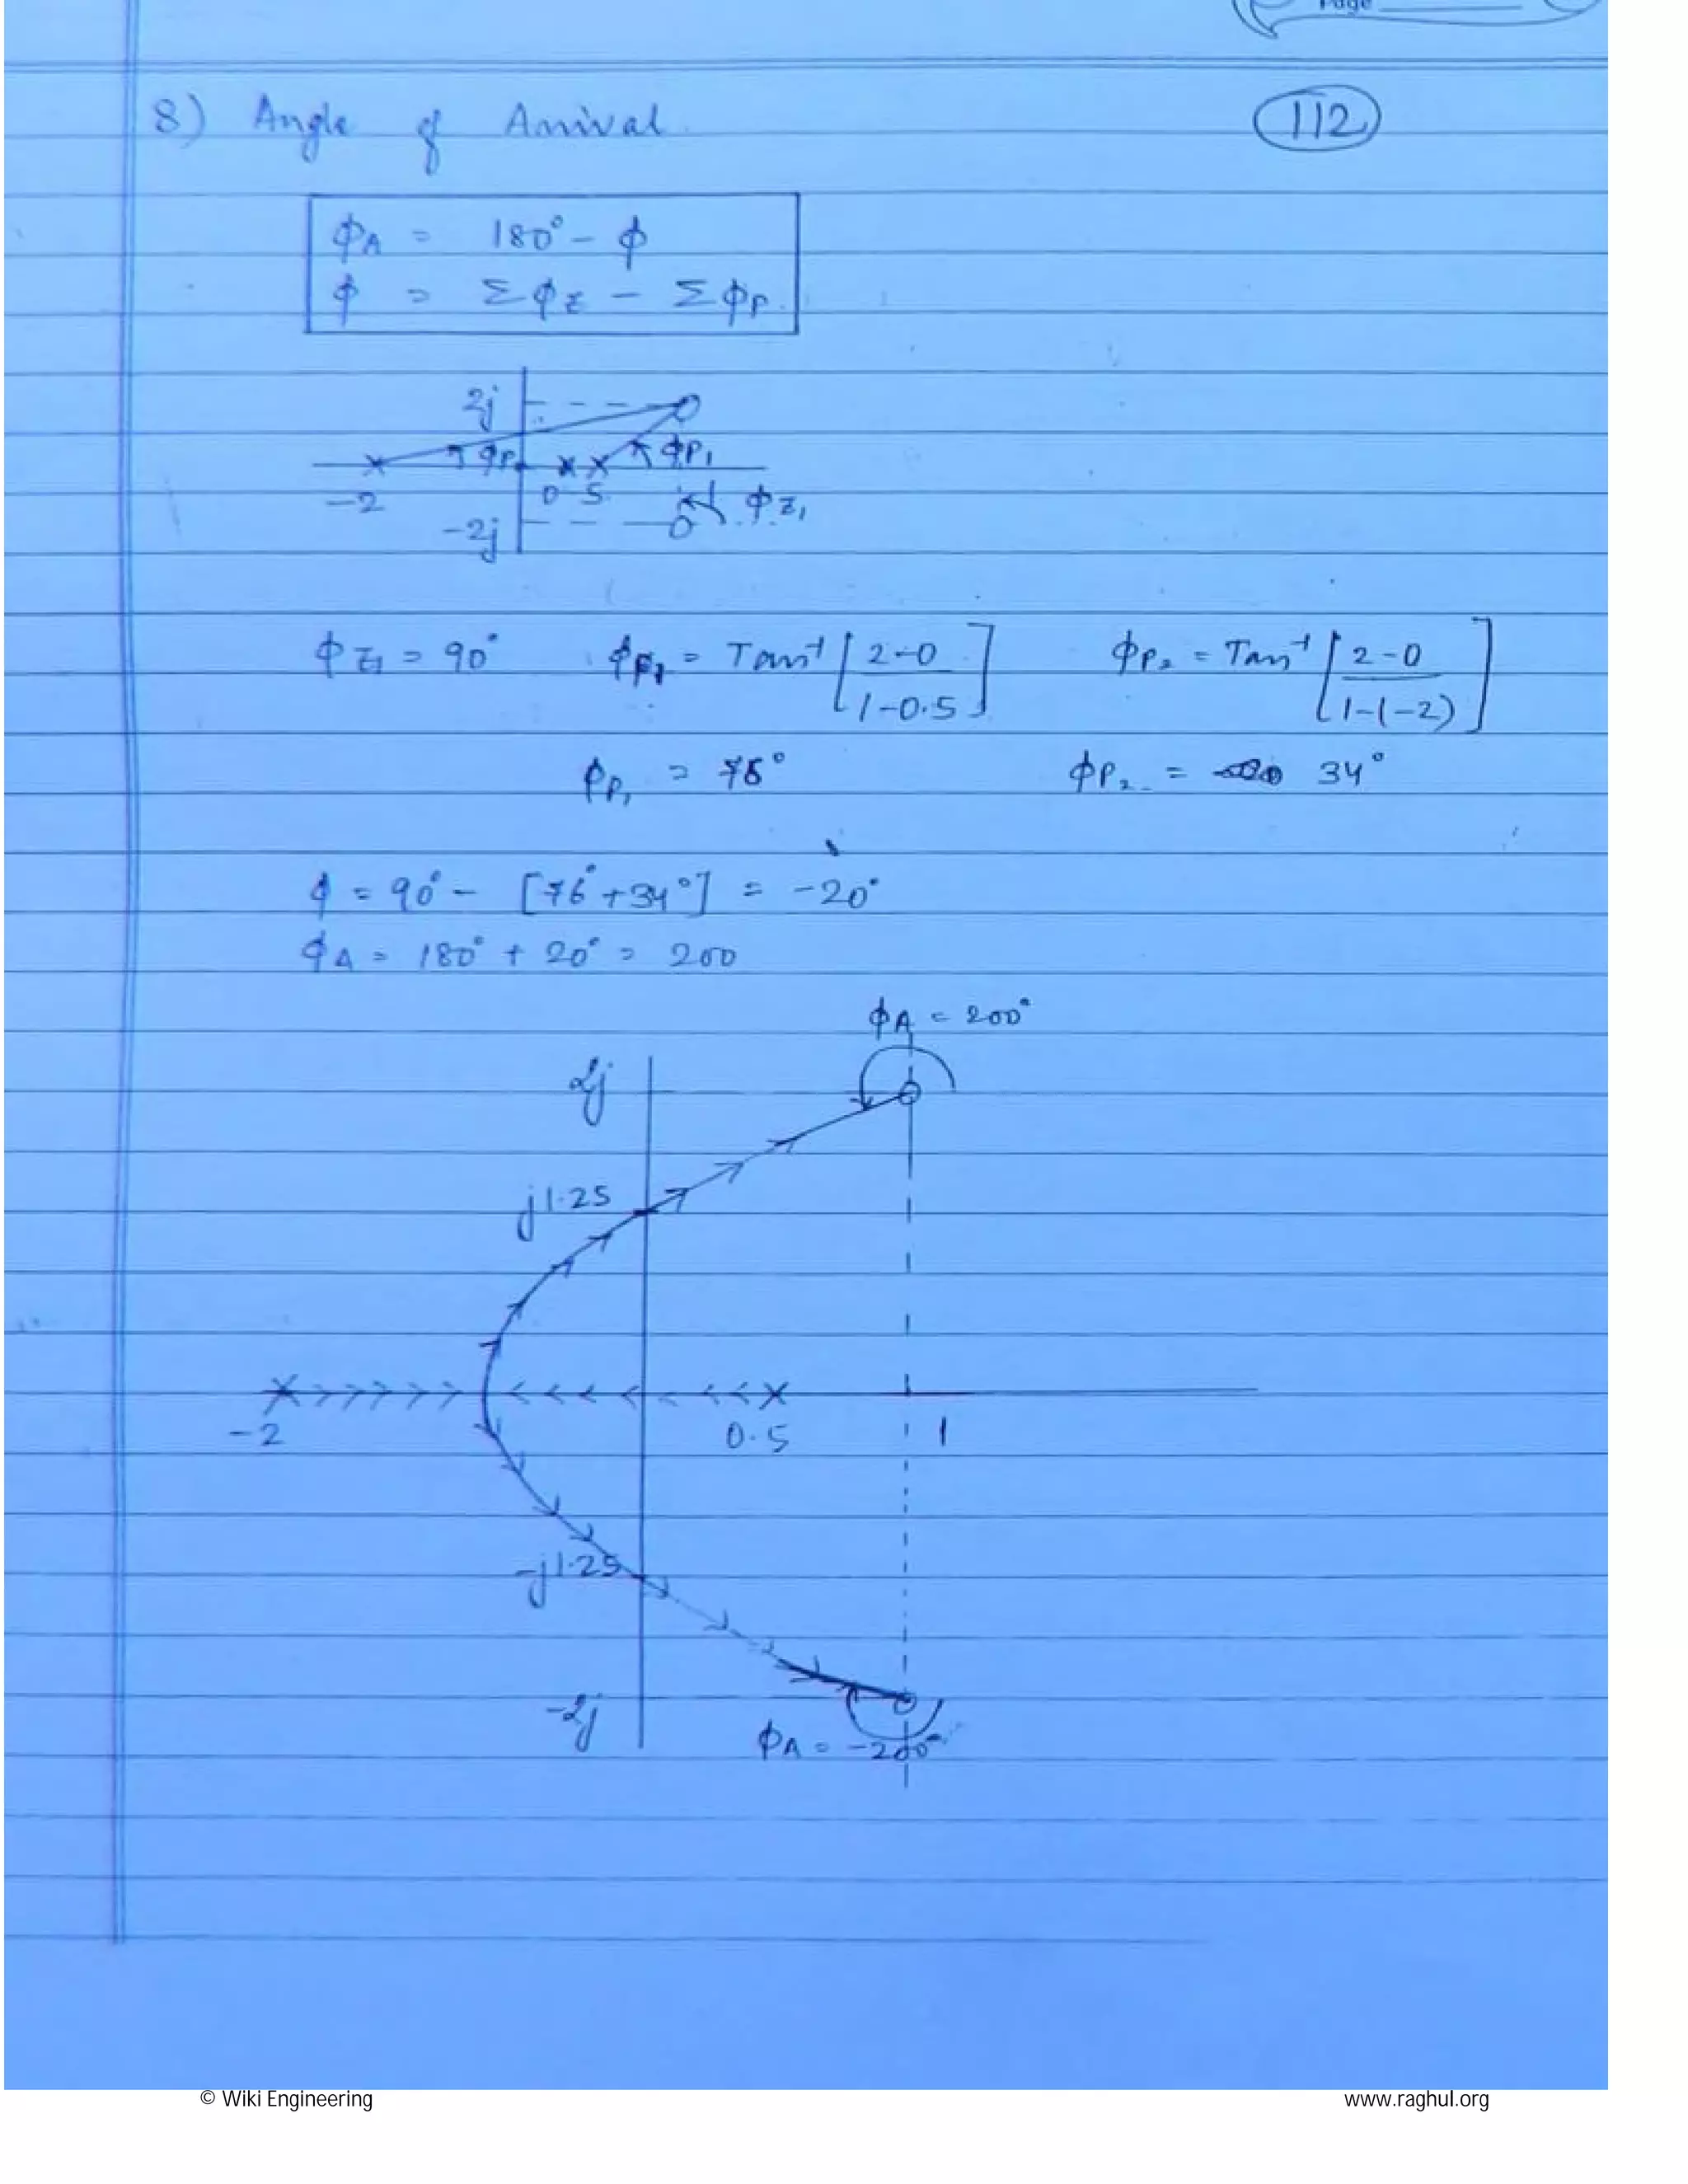 Page
8) Angle of Arrival
112
ϕA = 180° - ϕ
ϕ = Σϕz - Σϕp.
2j
ϕP
ϕP1
-2
0.5
ϕz1
-2j
ϕz1 = 90° ϕP1 = Tan⁻¹ [2-0 / 1-0.5] ϕP2 = Tan⁻¹ [2-0 / 1-(-2)]
ϕP1 = 76° ϕP2 = 34°
ϕ = 90° - [76° + 34°] = -20°
ϕA = 180° + 20° = 200
ϕA = 200°
2j
j1.25
-2
0.5
1
-j1.25
-2j
ϕA = -200°
© Wiki Engineering
www.raghul.org